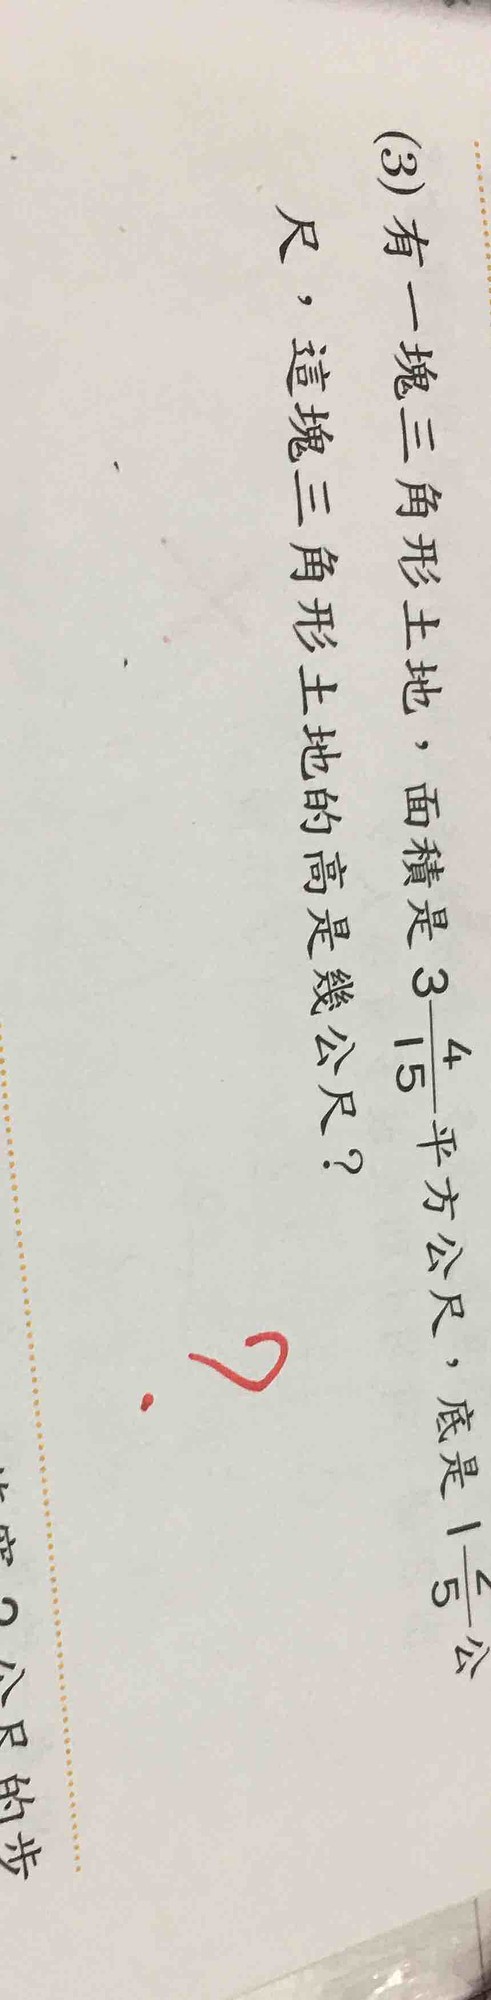 (3) 有一塊三角形土地，面積是 3 4/15 平方公尺，底是 1 2/5 公
尺，這塊三角形土地的高是幾公尺？
?
公尺的步